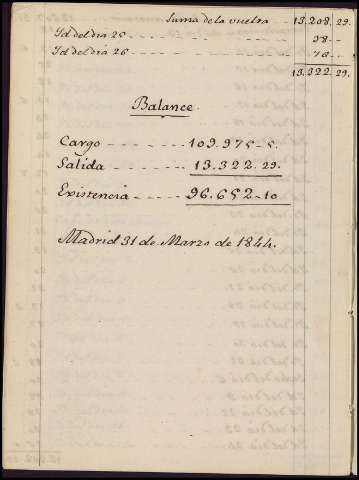 Suma de la vuelta - - 13.208. 29.
Id del dia 25 - - - - - - - - - - 38 - -
Id del dia 26 - - - - - - - - - - 76 - -
13.322. 29.
Balance.
Cargo - - - - - - 109.975 - 5.
Salida - - - - - - 13.322. 29.
Existencia - - - - - 96.652 - 10.
Madrid 31 de Marzo de 1844.